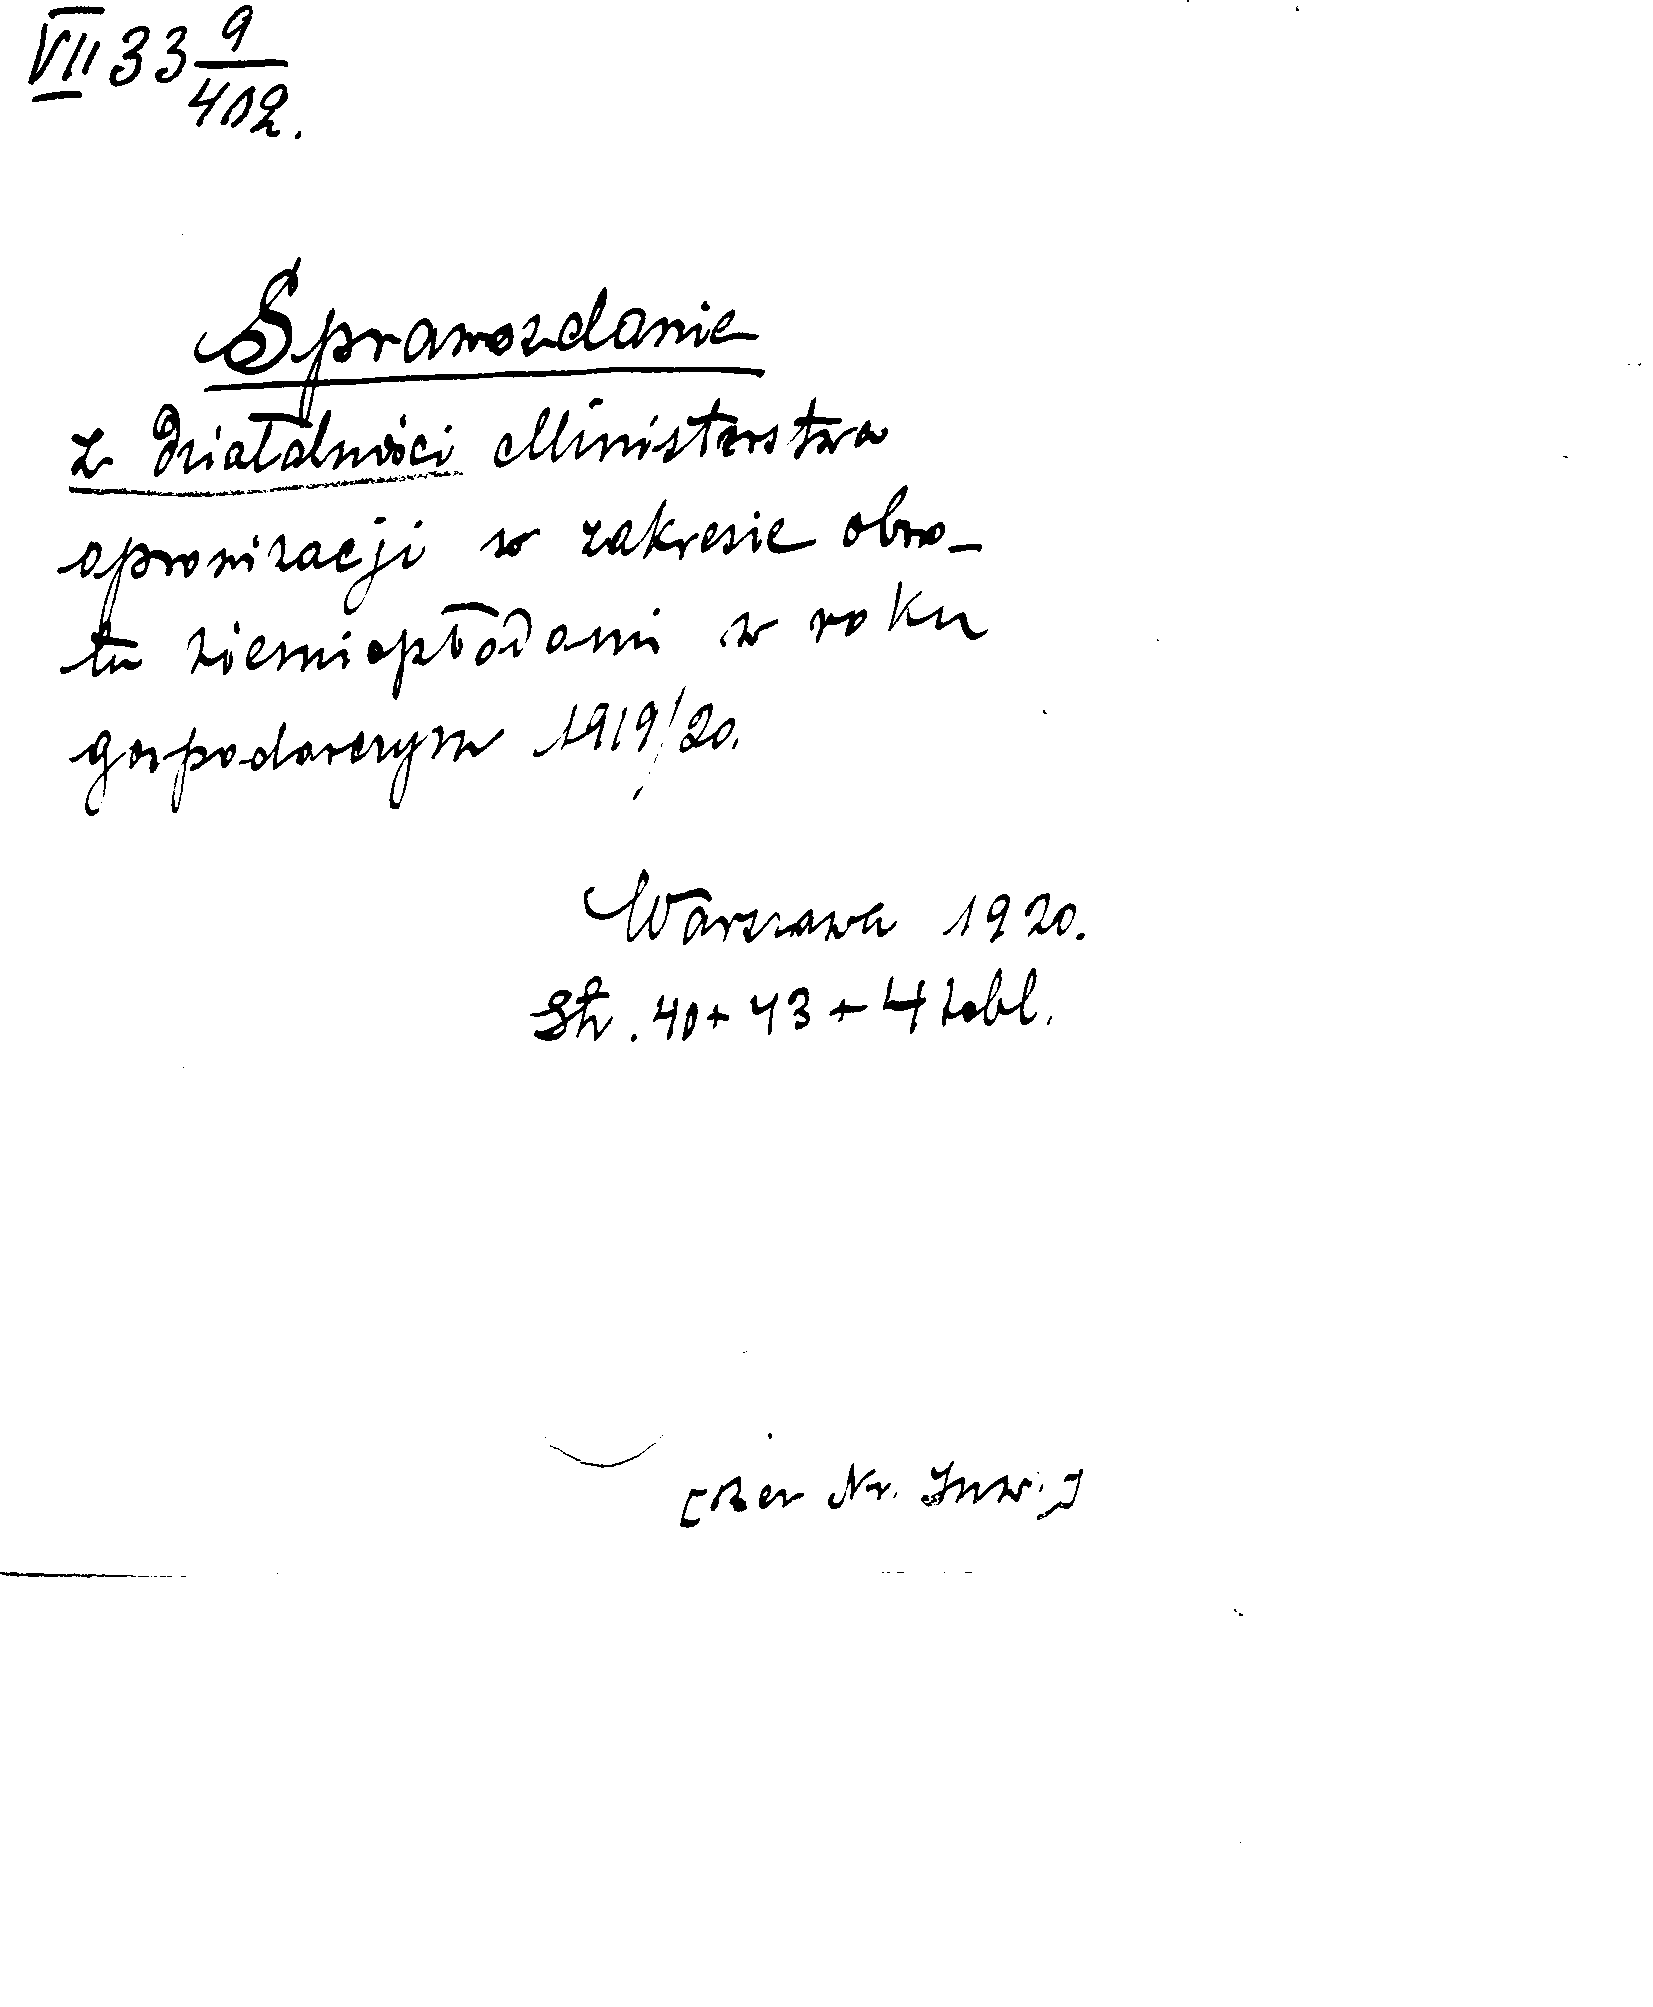 VII 33 9/402.
Sprawozdanie
z działalności Ministerstwa
aprowizacji w zakresie obro-
tu ziemiopłodami w roku
gospodarczym 1919/20.
Warszawa 1920.
Str. 40 + 43 + 4 tabl.
[Bez Nr. Inw.]